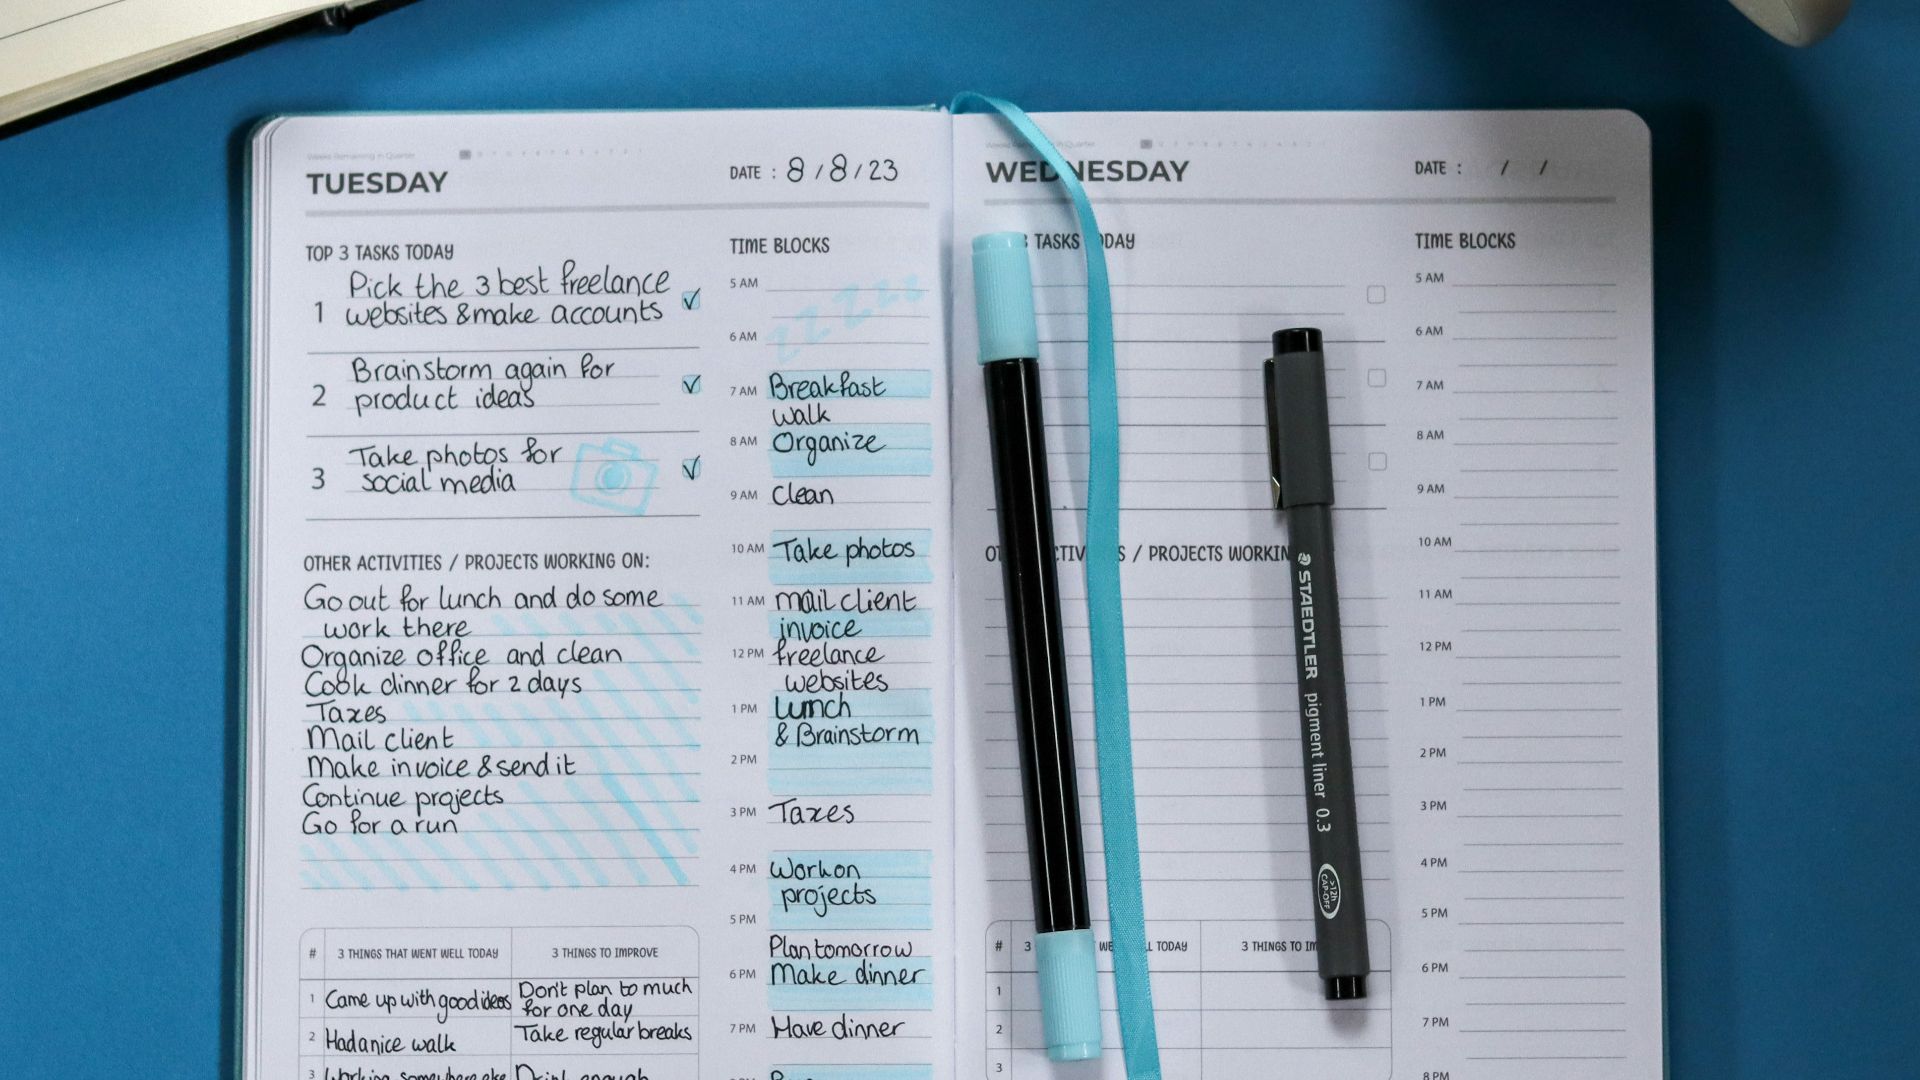 Weeks Remaining in Quarter
TUESDAY
DATE : 8/8/23
TOP 3 TASKS TODAY
1 Pick the 3 best freelance
websites & make accounts
2 Brainstorm again for
product ideas
3 Take photos for
social media
OTHER ACTIVITIES / PROJECTS WORKING ON:
Go out for lunch and do some
work there
Organize office and clean
Cook dinner for 2 days
Taxes
Mail client
Make invoice & send it
Continue projects
Go for a run
# 3 THINGS THAT WENT WELL TODAY 3 THINGS TO IMPROVE
1 Came up with good ideas Don't plan to much
for one day
2 Had a nice walk Take regular breaks
3 Working somewhere else Drink enough
TIME BLOCKS
5 AM zzzzz
6 AM
7 AM Breakfast
walk
8 AM Organize
9 AM Clean
10 AM Take photos
11 AM Mail client
invoice
12 PM freelance
websites
1 PM Lunch
& Brainstorm
2 PM
3 PM Taxes
4 PM Work on
projects
5 PM
Plan tomorrow
6 PM Make dinner
7 PM Have dinner
WEDNESDAY
DATE : / /
3 TASKS ODAY
# 3 WE L TODAY 3 THINGS TO IM
1
2
3
TIME BLOCKS
5 AM
6 AM
7 AM
8 AM
9 AM
10 AM
11 AM
12 PM
1 PM
2 PM
3 PM
4 PM
5 PM
6 PM
7 PM
8 PM
OT CTIV S / PROJECTS WORKIN
STAEDTLER pigment liner 0.3
>12h
CAP-OFF